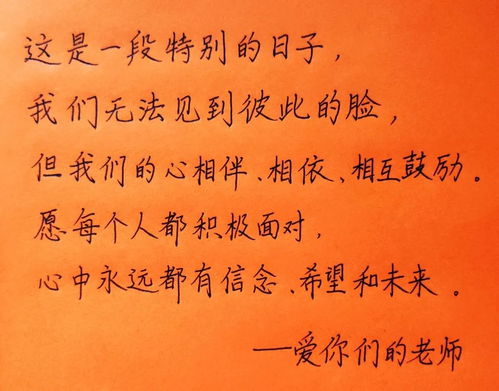 这是一段特别的日子，
我们无法见到彼此的脸，
但我们的心相伴、相依、相互鼓励。
愿每个人都积极面对，
心中永远都有信念、希望和未来。
——爱你们的老师